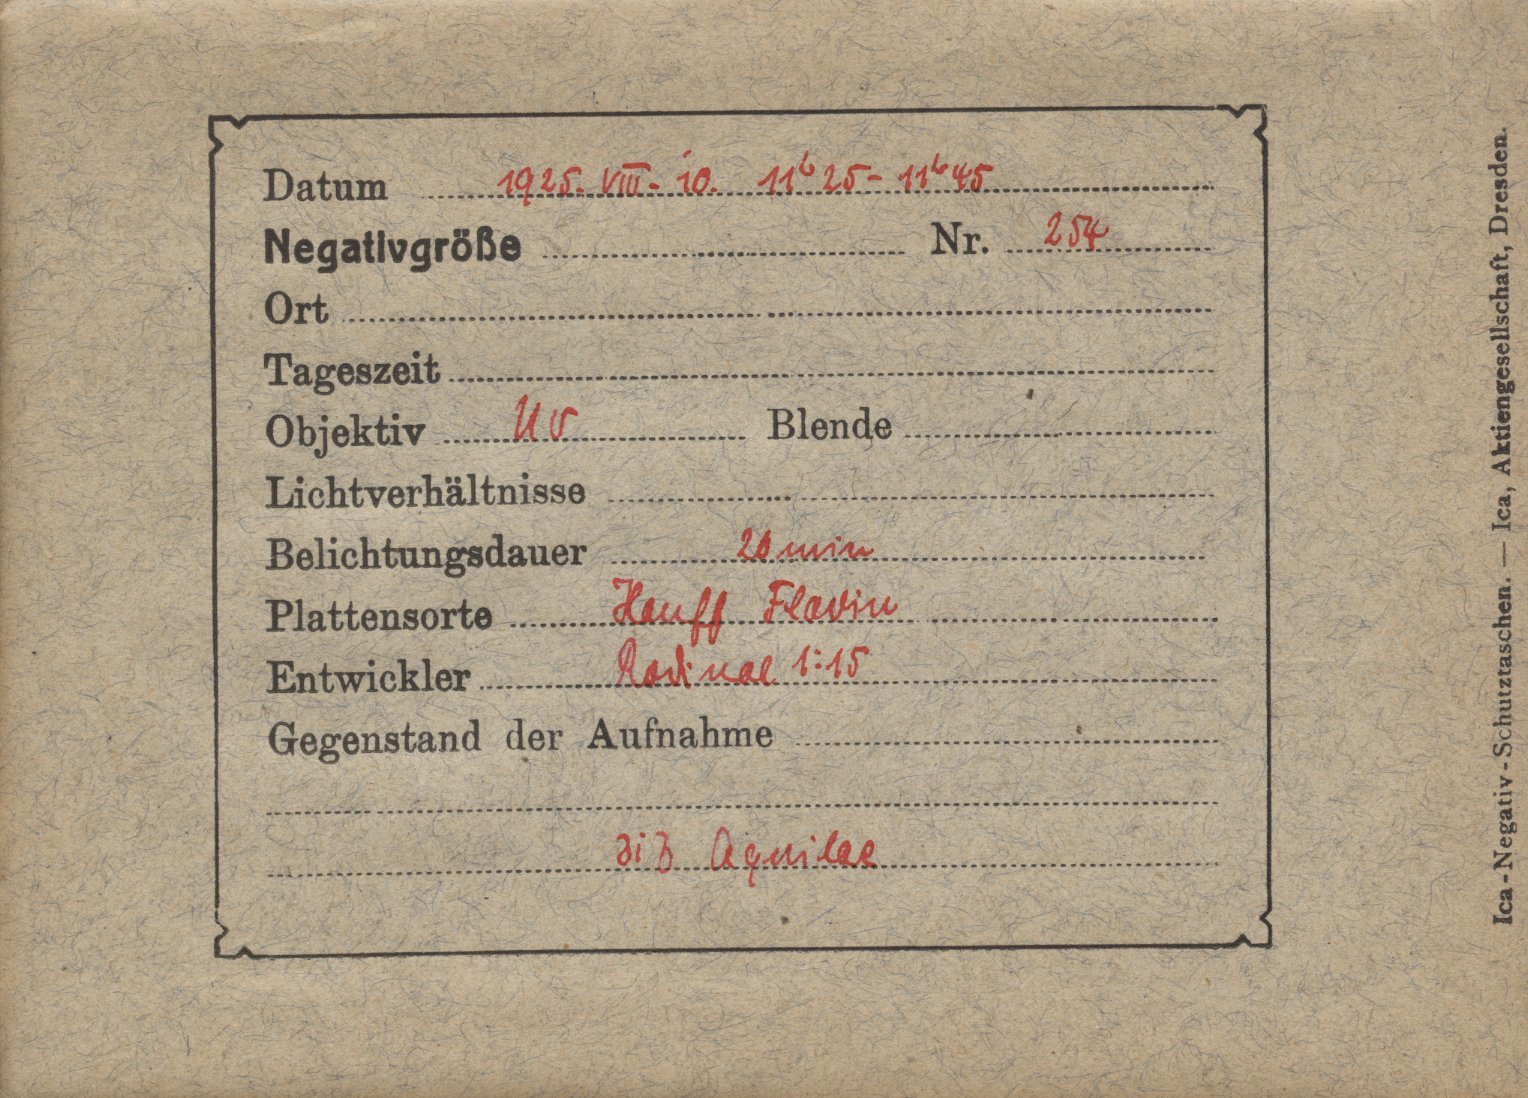 Datum 1925. VIII. 10. 11h 25 - 11h 45
Negativgröße Nr. 254
Ort
Tageszeit
Objektiv UV Blende
Lichtverhältnisse
Belichtungsdauer 20 min
Plattensorte Hauff Flavin
Entwickler Rodinal 1:15
Gegenstand der Aufnahme
Aquilae
Ica-Negativ-Schutztaschen. — Ica, Aktiengesellschaft, Dresden.